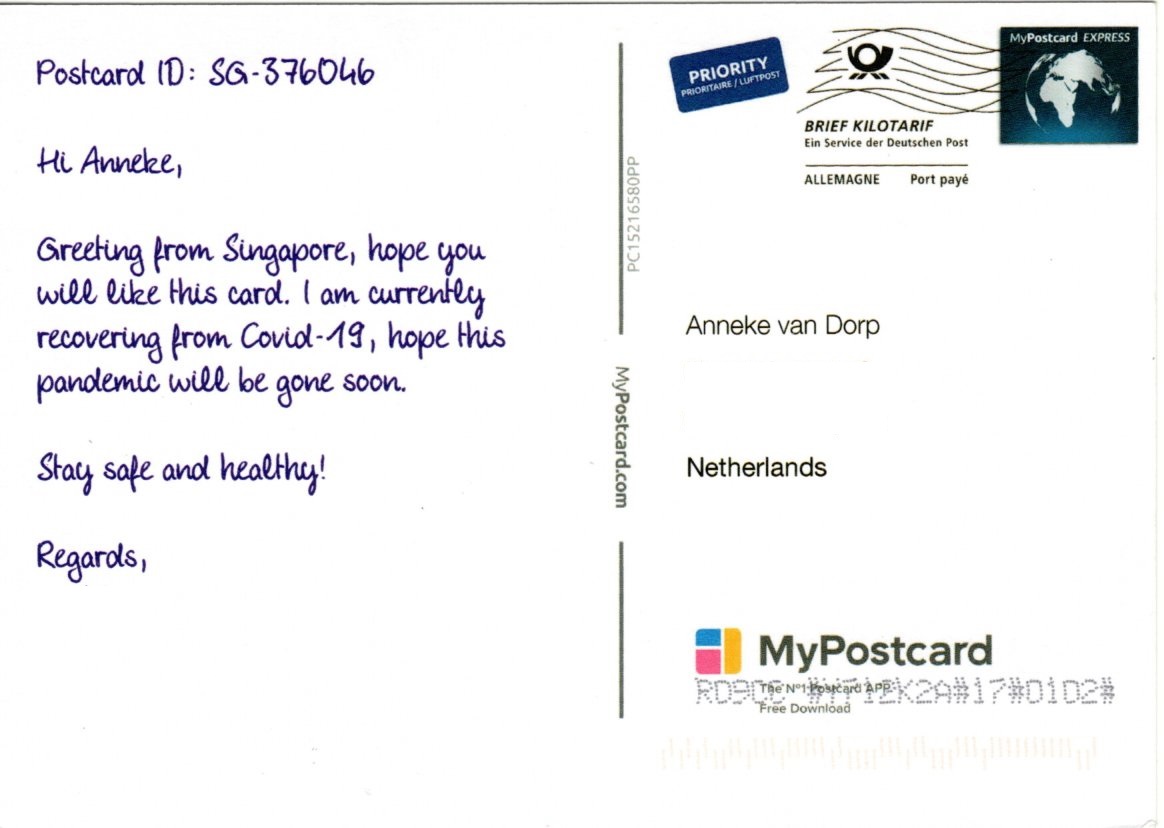 Postcard ID: SG-376046
Hi Anneke,
Greeting from Singapore, hope you
will like this card. I am currently
recovering from Covid-19, hope this
pandemic will be gone soon.
Stay safe and healthy!
Regards,
PRIORITY
PRIORITAIRE / LUFTPOST
BRIEF KILOTARIF
Ein Service der Deutschen Post
ALLEMAGNE Port payé
MyPostcard EXPRESS
PC15216580PP
MyPostcard.com
Anneke van Dorp
Netherlands
MyPostcard
The Nº1 Postcard APP
Free Download